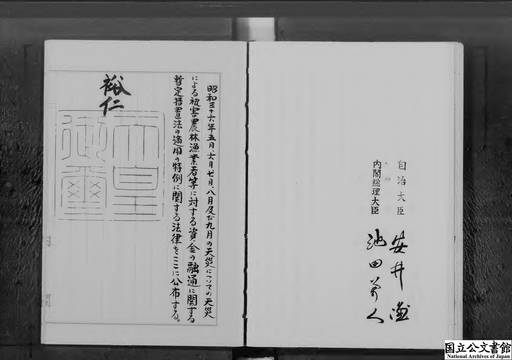 昭和三十六年五月、六月、七月、八月及び九月の天災についての天災
による被害農林漁業者等に対する資金の融通に関する
暫定措置法の適用の特例に関する法律をここに公布する。
裕仁
天皇
御璽
自治大臣 安井謙
内閣総理大臣 池田勇人
国立公文書館
National Archives of Japan